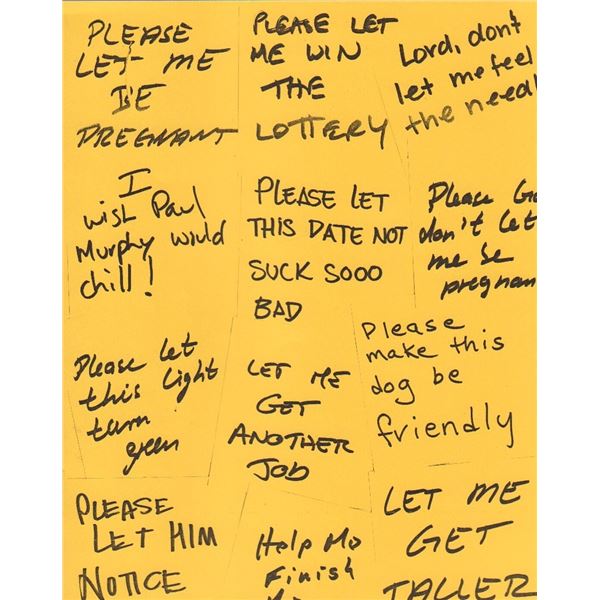 PLEASE
LET ME
BE
PREGNANT
PLEASE LET
ME WIN
THE
LOTTERY
Lord, don't
let me feel
the needl
I
wish Paul
Murphy would
chill!
PLEASE LET
THIS DATE NOT
SUCK SOOO
BAD
Please Go
don't let
me be
pregnan
Please let
this light
turn
green
LET ME
GET
ANOTHER
JOB
Please
make this
dog be
friendly
PLEASE
LET HIM
NOTICE
Help Me
Finish
LET ME
GET
TALLER